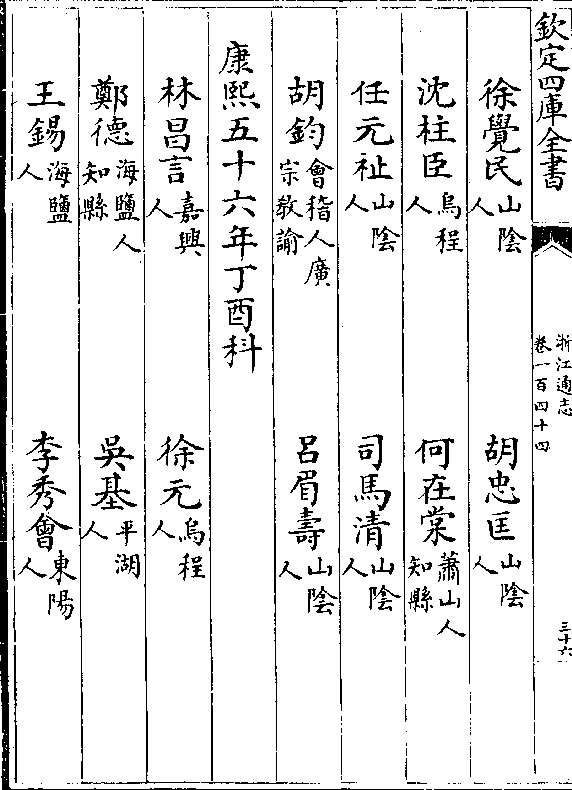 欽定四庫全書
浙江通志
卷一百四十四
三十六
徐覺民山陰人
胡忠匡山陰人
沈柱臣烏程人
何在棠蕭山人知縣
任元祉山陰人
司馬清山陰人
胡鈞會稽人廣宗教諭
呂眉壽山陰人
康熙五十六年丁酉科
林昌言嘉興人
徐元烏程人
鄭德海鹽人知縣
吳基平湖人
王錫海鹽人
李秀會東陽人